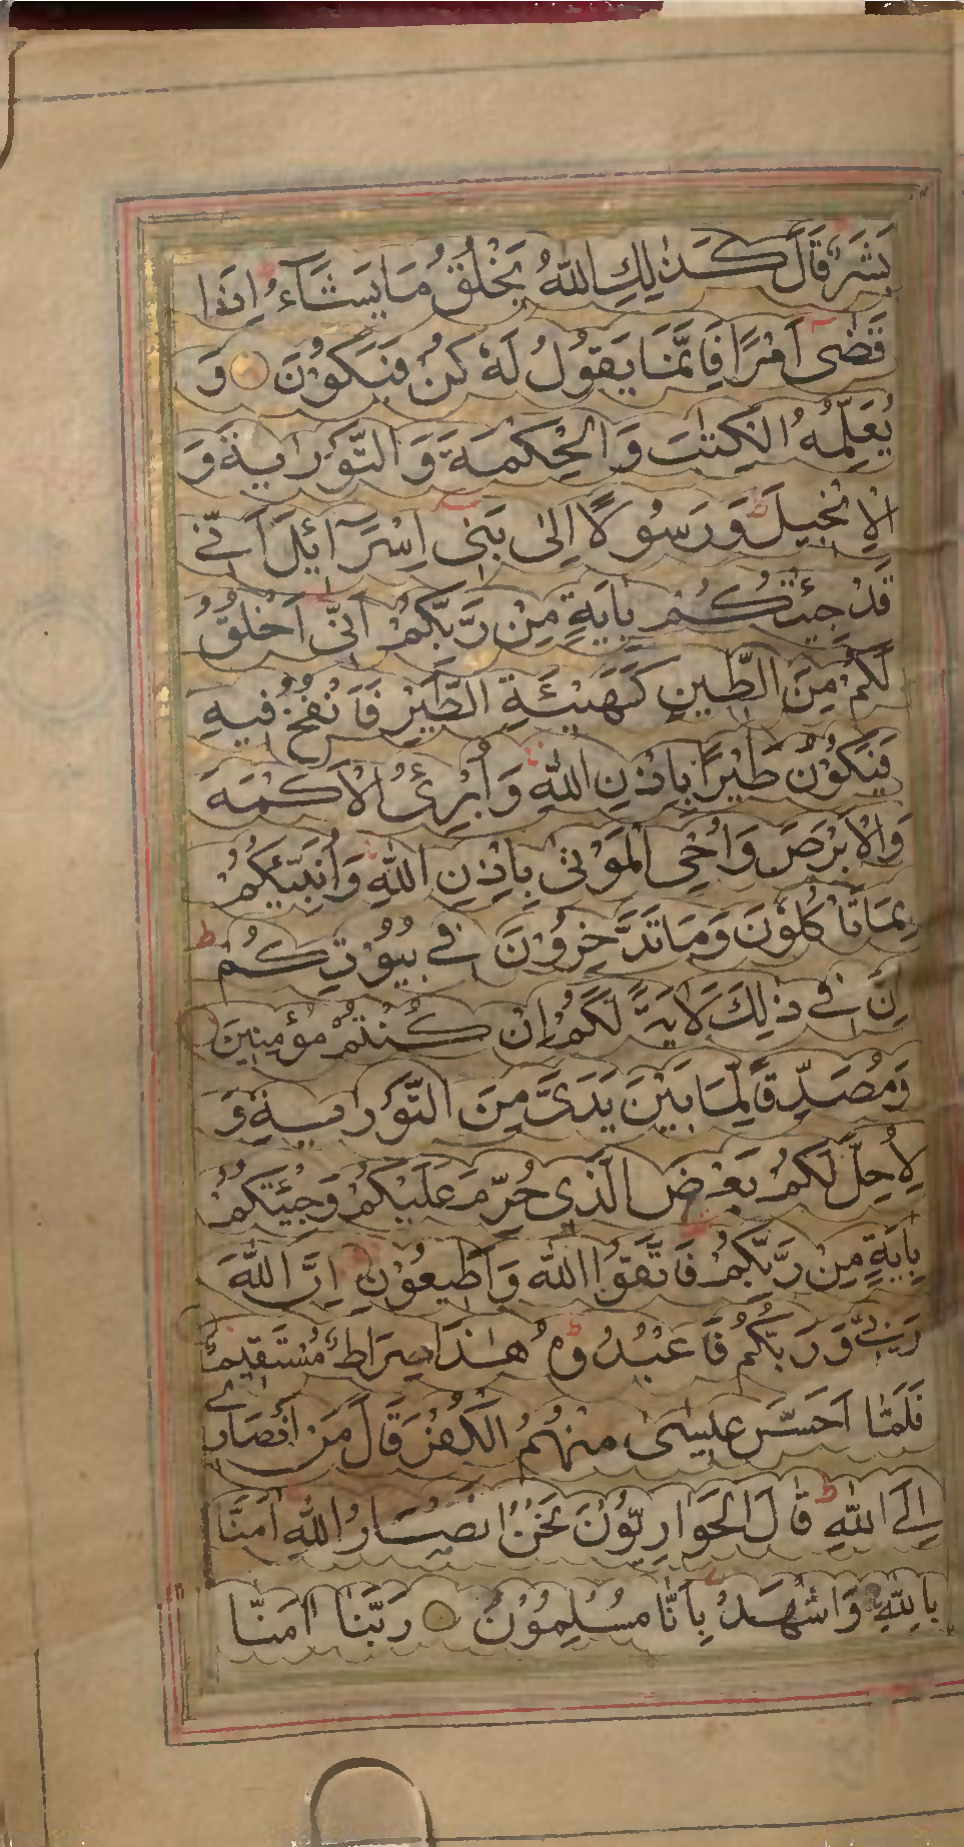 بَشَرٌ قَالَ كَذٰلِكِ اللّٰهُ يَخْلُقُ مَا يَشَآءُ اِذَا
قَضٰى اَمْرًا فَاِنَّمَا يَقُوْلُ لَهٗ كُنْ فَيَكُوْنُ وَ
يُعَلِّمُهُ الْكِتٰبَ وَالْحِكْمَةَ وَالتَّوْرٰىةَ وَ
الْاِنْجِيْلَ وَرَسُوْلًا اِلٰى بَنِىْ اِسْرَآئِيْلَ اَنِّىْ
قَدْ جِئْتُكُمْ بِاٰيَةٍ مِنْ رَّبِّكُمْ اَنِّىْ اَخْلُقُ
لَكُمْ مِنَ الطِّيْنِ كَهَيْئَةِ الطَّيْرِ فَاَنْفُخُ فِيْهِ
فَيَكُوْنُ طَيْرًا بِاِذْنِ اللّٰهِ وَاُبْرِئُ الْاَكْمَهَ
وَالْاَبْرَصَ وَاُحْىِ الْمَوْتٰى بِاِذْنِ اللّٰهِ وَاُنَبِّئُكُمْ
بِمَا تَاْكُلُوْنَ وَمَا تَدَّخِرُوْنَ فِىْ بُيُوْتِكُمْ ط
اِنَّ فِىْ ذٰلِكَ لَاٰيَةً لَّكُمْ اِنْ كُنْتُمْ مُؤْمِنِيْنَ
وَمُصَدِّقًا لِّمَا بَيْنَ يَدَىَّ مِنَ التَّوْرٰىةِ وَ
لِاُحِلَّ لَكُمْ بَعْضَ الَّذِىْ حُرِّمَ عَلَيْكُمْ وَجِئْتُكُمْ
بِاٰيَةٍ مِنْ رَّبِّكُمْ فَاتَّقُوا اللّٰهَ وَاَطِيْعُوْنِ اِنَّ اللّٰهَ
رَبِّىْ وَرَبُّكُمْ فَاعْبُدُوْهُ ط هٰذَا صِرَاطٌ مُسْتَقِيْمٌ
فَلَمَّا اَحَسَّ عِيْسٰى مِنْهُمُ الْكُفْرَ قَالَ مَنْ اَنْصَارِىْ
اِلَى اللّٰهِ ط قَالَ الْحَوَارِيُّوْنَ نَحْنُ اَنْصَارُ اللّٰهِ اٰمَنَّا
بِاللّٰهِ وَاشْهَدْ بِاَنَّا مُسْلِمُوْنَ رَبَّنَا اٰمَنَّا